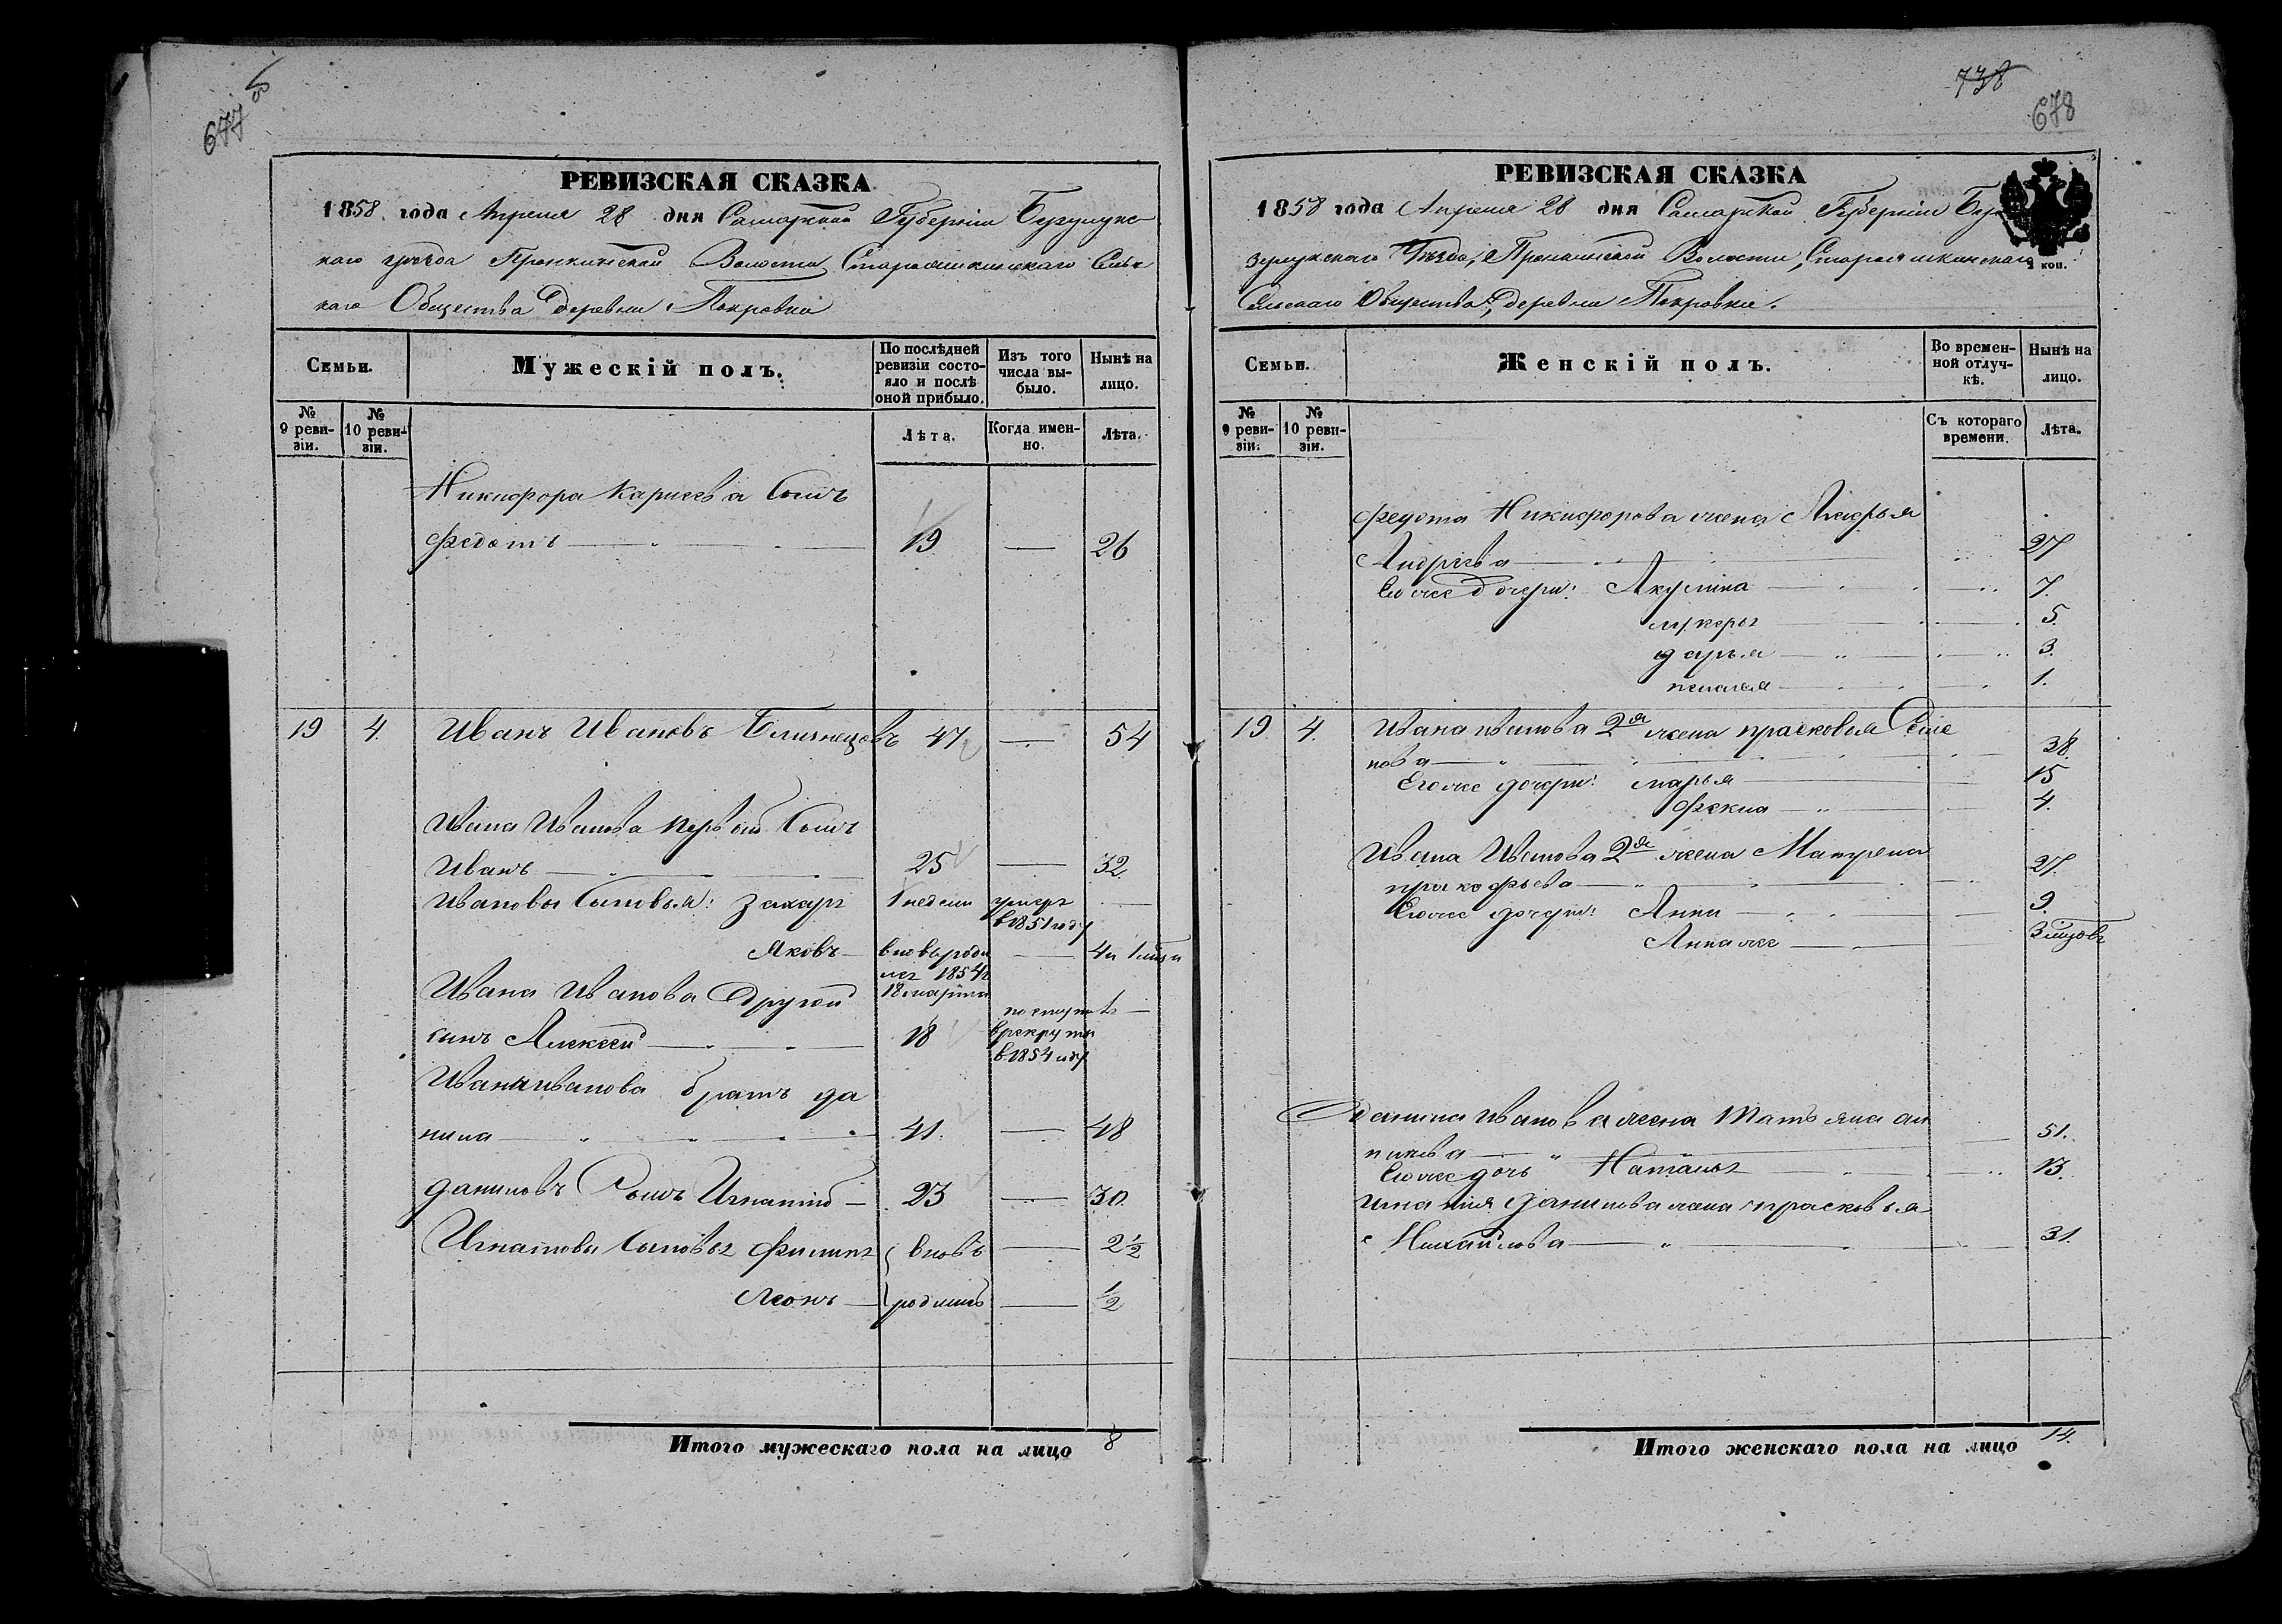 677 об
РЕВИЗСКАЯ СКАЗКА
1858 года Апреля 28 дня Самарской Губерніи Бузулукс-
каго уѣзда Пронкинской Волости Староашкинскаго Сельс
каго Общества деревни Покровки
Семьи.
Мужескій полъ.
По послѣдней ревизіи состо-яло и послѣ оной прибыло.
Изъ того числа вы-было.
Нынѣ на лицо.
№ 9 реви-зіи.
№ 10 реви-зіи.
Лѣта.
Когда имен-но.
Лѣта.
Никифора Сынъ
Федотъ 19 — 26
19 4. Иванъ Ивановъ Близнецовъ 47 — 54
Ивана Иванова первой Сынъ
Иванъ 25 — 32
Ивановы Сыновья: Захаръ 1 недели умеръ в 1851 году —
Яковъ вновь роди лся 1854 г 18 марта — 4 и 1
Ивана Иванова Другой
сынъ Алексей 18 поступ в рекруты в 1854 году —
Ивана Иванова братъ да
нила 41. — 48
даниловъ Сынъ Игнатій 23 — 30.
Игнатовы Сыновья Филипъ вновь — 2½
Леонъ родились — ½
Итого мужескаго пола на лицо 8
738
678
РЕВИЗСКАЯ СКАЗКА
1858 года Апреля 28 дня Самарской Губерніи Бу
зулукскаго Уѣзда, Пронкинской Волости, Староашкинскаго
коп.
Сельскаго Общества, деревни Покровки.
Семьи.
Женскій полъ.
Во времен-ной отлуч-кѣ.
Нынѣ на лицо.
№ 9 реви-зіи.
№ 10 реви-зіи.
Съ котораго времени.
Лѣта.
Федота Никифорова жена
Андреева 27
Ево же дочери: Акулина 7.
5.
дарья 3.
пелагея 1.
19. 4. Ивана Иванова 2я жена прасковья Семе
нова 38.
Его же дочери: марья 15
Фекла 4.
Ивана Иванова 2я жена Матрена
прокофьева 27.
Ево же дочери: Анна 9.
Анна же 3
Данила Иванова жена Татьяна
51.
Ево же дочь Наталья 13.
Игнатія Данилова жена прасковья
Михайлова 31.
Итого женскаго пола на лицо 14.